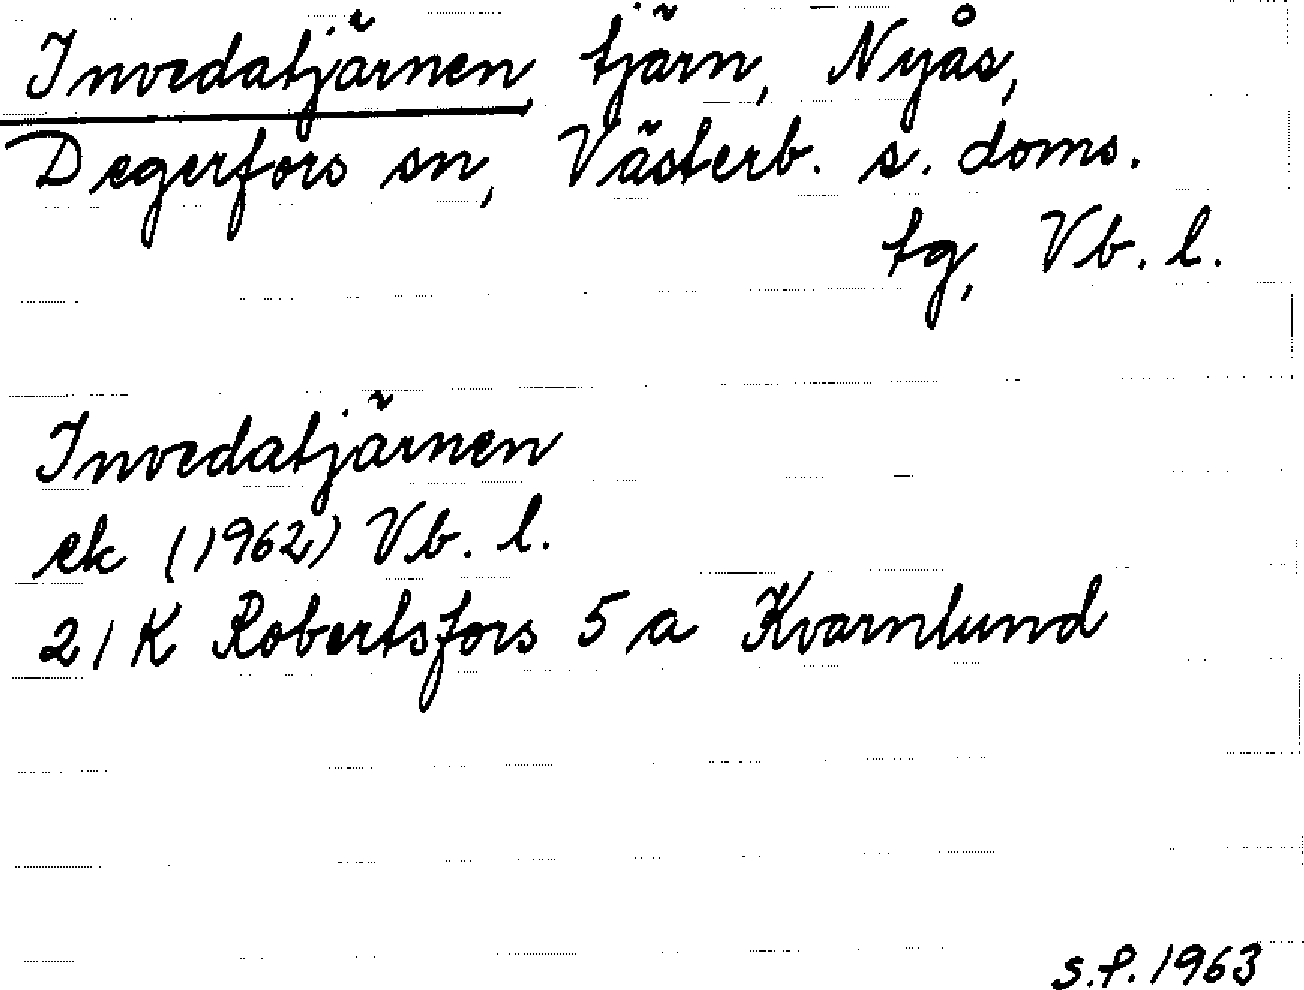 Invedatjärnen, tjärn, Nyås,
Degerfors sn, Västerb. s. doms.
tg, Vb. l.
Invedatjärnen
ek (1962) Vb. l.
21K Robertsfors 5 a Kvarnlund
S.P. 1963